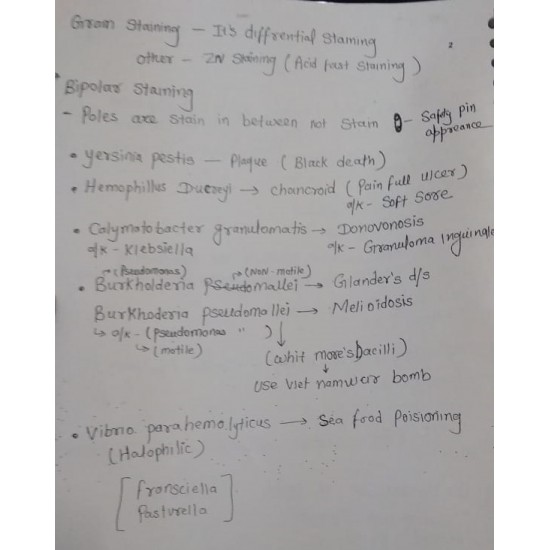 Gram Staining - It's diffrential Staining
2
other - ZN Staining (Acid fast Staining)
Bipolar Staining
- Poles are Stain in between not Stain - Safety pin
appreance
• yersinia pestis - Plague (Black death)
• Hemophillus Ducreyi → chancroid (Pain full ulcer)
a/k - Soft Sore
• Calymatobacter granulomatis → Donovonosis
a/k - Klebsiella a/k - Granuloma Inguinale
(Pseudomonas) (Non-motile)
• Burkholderia Pseudomallei → Glander's d/s
Burkhoderia pseudomallei → Melioidosis
↳ a/k - (Pseudomonas " )
↳ (motile) (whit more's bacilli)
use Viet namwar bomb
• Vibrio parahemolyticus → Sea food Poisioning
(Halophilic)
[ fransciella
Pasturella ]